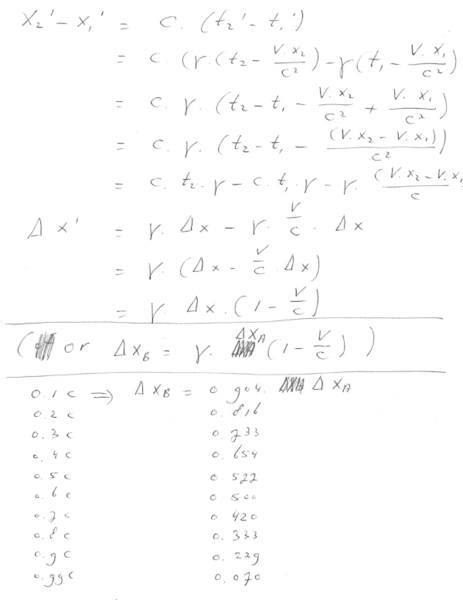 x₂' − x₁' = c. (t₂' − t₁')
= c. (γ.(t₂ − V.x₂/c²) − γ(t₁ − V.x₁/c²)
= c. γ. (t₂ − t₁ − V.x₂/c² + V.x₁/c²)
= c. γ. (t₂ − t₁ − (V.x₂ − V.x₁)/c²)
= c. t₂. γ − c. t₁. γ − γ. (V.x₂ − V.x₁/c
Δ x' = γ. Δx − γ. V/c . Δx
= γ. (Δx − V/c . Δx)
= γ Δx. (1 − V/c)
( or Δx_B = γ. Δx_A (1 − V/c) )
0.1 c ⇒ Δx_B = 0.904. Δx_A
0.2 c 0.816
0.3 c 0.733
0.4 c 0.654
0.5 c 0.577
0.6 c 0.500
0.7 c 0.420
0.8 c 0.333
0.9 c 0.229
0.99 c 0.070